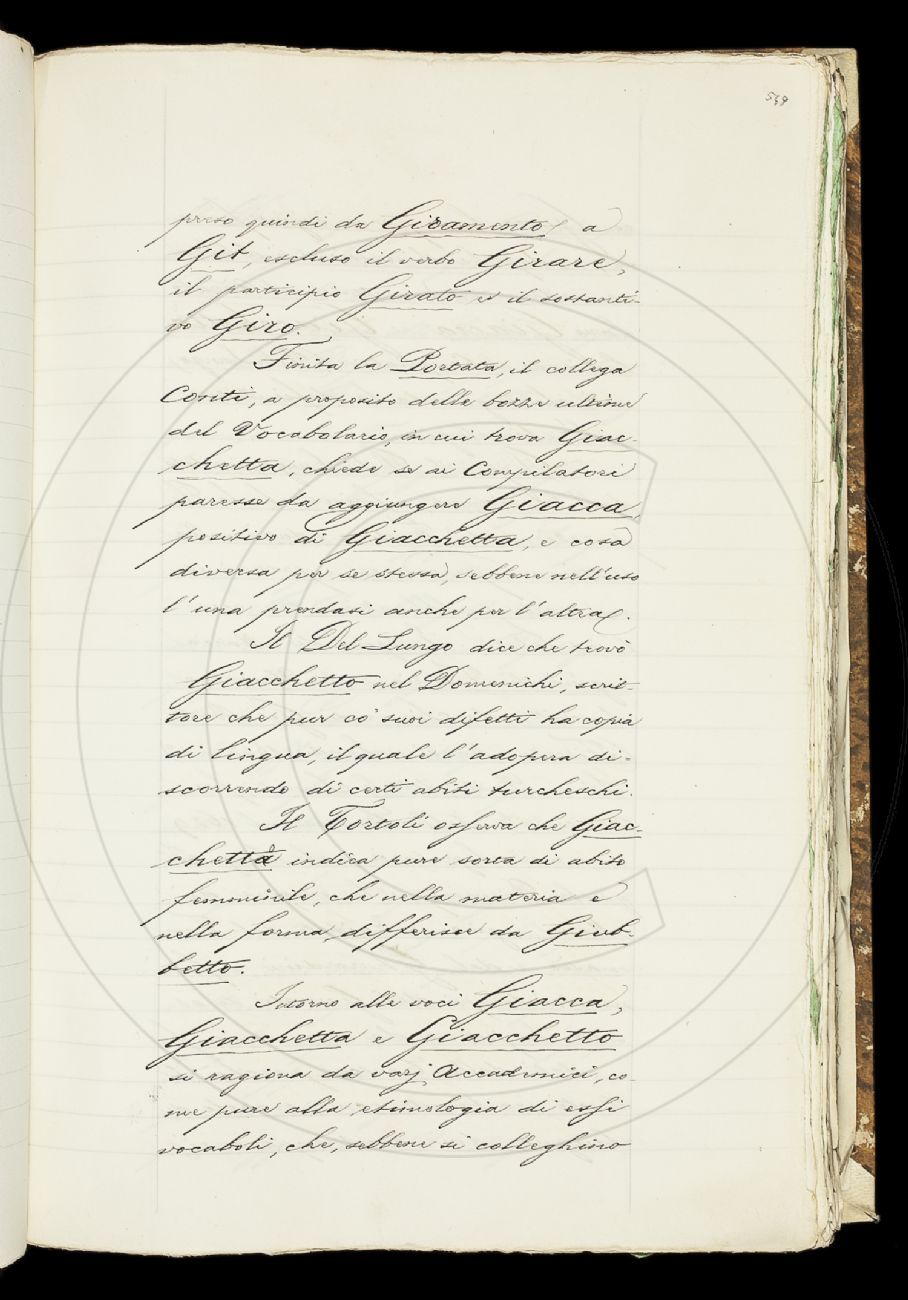 549
preso quindi da Giramento a
Git, escluso il verbo Girare,
il participio Girato es il sostanti-
vo Giro.
Finita la Portata, il collega
Conti, a proposito delle bozze ultime
del Vocabolario, in cui trova Giac-
chetta, chiede se ai Compilatori
paresse da aggiungere Giacca,
positivo di Giacchetta, e cosa
diversa per se stessa, sebbene nell'uso
l'una prendasi anche per l'altra.
Il Del Lungo dice che trovò
Giacchetto nel Domenichi, scrit-
tore che pur co' suoi difetti ha copia
di lingua, il quale l'adopera di-
scorrendo di certi abiti turcheschi.
Il Tortoli osserva che Giac-
chetta indica pure sorta di abito
femminile, che nella materia e
nella forma, differisce da Giub-
betto.
Intorno alle voci Giacca,
Giacchetta e Giacchetto
si ragiona da varj Accademici, co-
me pure alla etimologia di essi
vocaboli, che, sebbene si colleghino